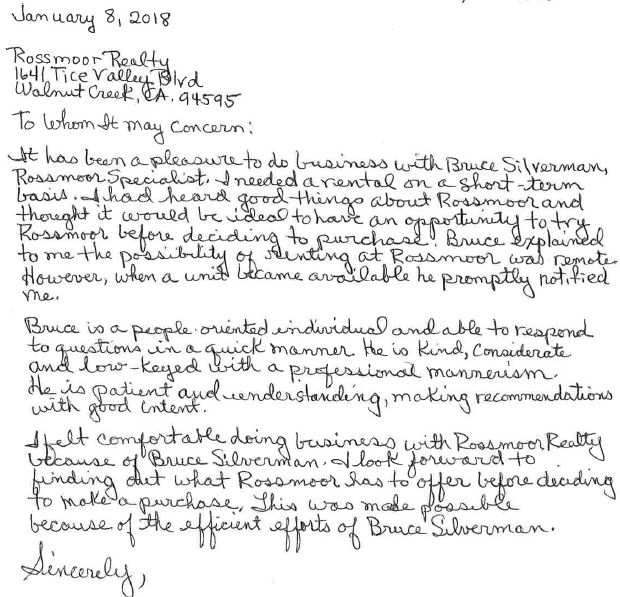 January 8, 2018
Rossmoor Realty
1641 Tice Valley Blvd
Walnut Creek, CA. 94595
To Whom It may Concern:
It has been a pleasure to do business with Bruce Silverman,
Rossmoor Specialist. I needed a rental on a short-term
basis. I had heard good things about Rossmoor and
thought it would be ideal to have an opportunity to try
Rossmoor before deciding to purchase. Bruce explained
to me the possibility of renting at Rossmoor was remote.
However, when a unit became available he promptly notified
me.
Bruce is a people-oriented individual and able to respond
to questions in a quick manner. He is Kind, Considerate
and low-keyed with a professional mannerism.
He is patient and understanding, making recommendations
with good intent.
I felt comfortable doing business with Rossmoor Realty
because of Bruce Silverman. I look forward to
finding out what Rossmoor has to offer before deciding
to make a purchase. This was made possible
because of the efficient efforts of Bruce Silverman.
Sincerely,